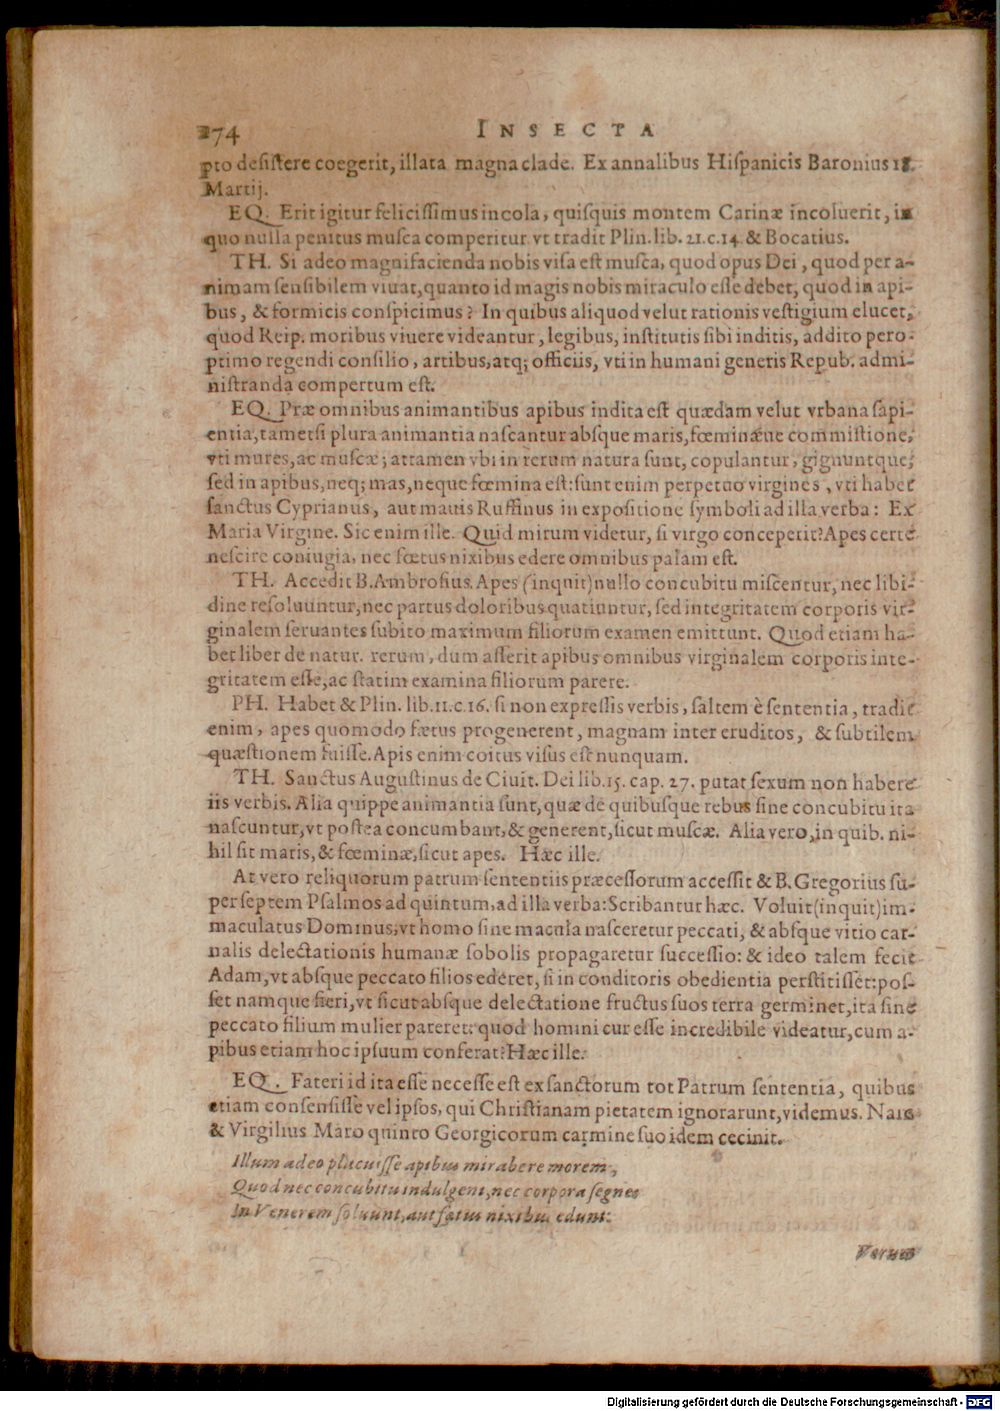 274 INSECTA
pto desistere coegerit, illata magna clade. Ex annalibus Hispanicis Baronius 18.
Martij.
EQ. Erit igitur felicissimus incola, quisquis montem Carinæ incoluerit, in
quo nulla penitus musca comperitur vt tradit Plin. lib. 21. c. 14 & Bocatius.
TH. Si adeo magnifacienda nobis visa est musca, quod opus Dei, quod per a-
nimam sensibilem viuat, quanto id magis nobis miraculo esse debet, quod in api-
bus, & formicis conspicimus? In quibus aliquod velut rationis vestigium elucet,
quod Reip. moribus viuere videantur, legibus, institutis sibi inditis, addito pero-
ptimo regendi consilio, artibus, atq; officiis, vti in humani generis Repub. admi-
nistranda compertum est.
EQ. Præ omnibus animantibus apibus indita est quædam velut vrbana sapi-
entia, tametsi plura animantia nascantur absque maris, fœminæue commistione,
vti mures, ac muscæ; attamen vbi in rerum natura sunt, copulantur, gignuntque,
sed in apibus, neq; mas, neque fœmina est: sunt enim perpetuo virgines, vti habet
sanctus Cyprianus, aut mauis Ruffinus in expositione symboli ad illa verba: Ex
Maria Virgine. Sic enim ille. Quid mirum videtur, si virgo conceperit? Apes certe
nescire coniugia, nec fœtus nixibus edere omnibus palam est.
TH. Accedit B. Ambrosius. Apes (inquit) nullo concubitu miscentur, nec libi-
dine resoluuntur, nec partus doloribus quatiuntur, sed integritatem corporis vir-
ginalem seruantes subito maximum filiorum examen emittunt. Quod etiam ha-
bet liber de natur. rerum, dum asserit apibus omnibus virginalem corporis inte-
gritatem esse, ac statim examina filiorum parere.
PH. Habet & Plin. lib. 11. c. 16. si non expressis verbis, saltem è sententia, tradit
enim, apes quomodo fœtus progenerent, magnam inter eruditos, & subtilem
quæstionem fuisse. Apis enim coitus visus est nunquam.
TH. Sanctus Augustinus de Ciuit. Dei lib. 15. cap. 27. putat sexum non habere
iis verbis. Alia quippe animantia sunt, quæ de quibusque rebus sine concubitu ita
nascuntur, vt postea concumbant, & generent, sicut muscæ. Alia vero, in quib. ni-
hil sit maris, & fœminæ, sicut apes. Hæc ille.
At vero reliquorum patrum sententiis præcessorum accessit & B. Gregorius su-
per septem Psalmos ad quintum, ad illa verba: Scribantur hæc. Voluit (inquit) im-
maculatus Dominus, vt homo sine macula nasceretur peccati, & absque vitio car-
nalis delectationis humanæ sobolis propagaretur successio: & ideo talem fecit
Adam, vt absque peccato filios ederet, si in conditoris obedientia perstitisset: pos-
set namque fieri, vt sicut absque delectatione fructus suos terra germinet, ita sine
peccato filium mulier pareret: quod homini cur esse incredibile videatur, cum a-
pibus etiam hoc ipsuum conferat? Hæc ille.
EQ. Fateri id ita esse necesse est ex sanctorum tot Patrum sententia, quibus
etiam consensisse vel ipsos, qui Christianam pietatem ignorarunt, videmus. Nam
& Virgilius Maro quinto Georgicorum carmine suo idem cecinit.
Illum adeo placuisse apibus mirabere morem,
Quod nec concubitu indulgent, nec corpora segnes
In Venerem soluunt, aut fœtus nixibus edunt:
Verum
Digitalisierung gefördert durch die Deutsche Forschungsgemeinschaft - DFG